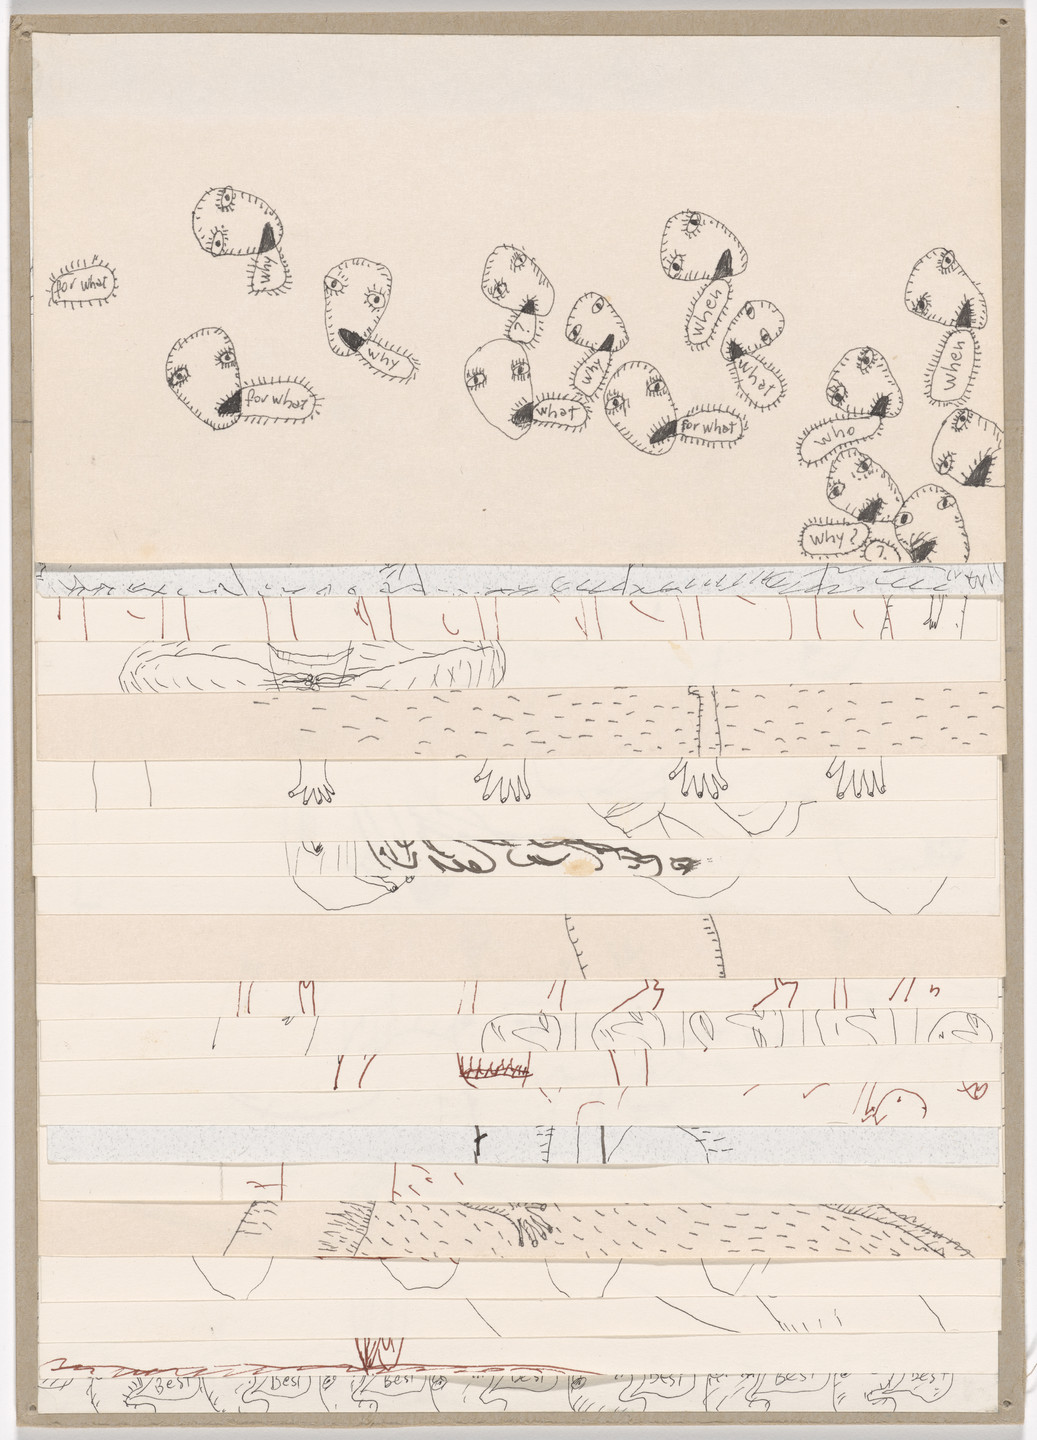 for what
why
for what
why
?
what
why
for what
when
what
who
when
why?
?
Best
Best
Best
Best
Best
Best
Best